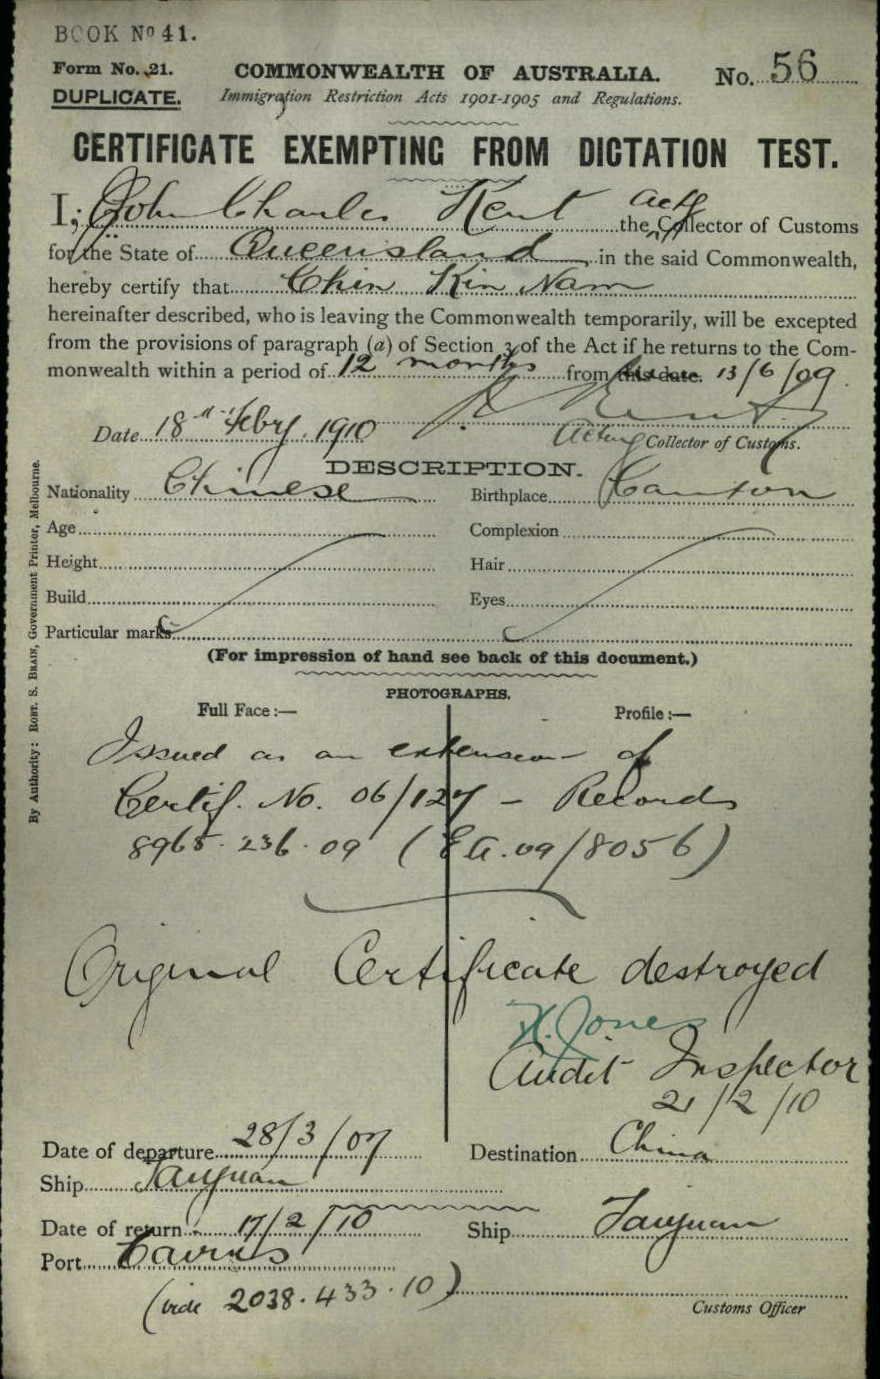 BOOK No 41.
Form No. 21. COMMONWEALTH OF AUSTRALIA. No. 56
DUPLICATE. Immigration Restriction Acts 1901-1905 and Regulations.
CERTIFICATE EXEMPTING FROM DICTATION TEST.
I, John Charles Kent the Actg Collector of Customs
for the State of Queensland in the said Commonwealth,
hereby certify that Chin Kin Nam
hereinafter described, who is leaving the Commonwealth temporarily, will be excepted
from the provisions of paragraph (a) of Section 3 of the Act if he returns to the Com-
monwealth within a period of 12 months from this date. 13/6/09.
Date 18th Feby. 1910 J C Kent
Acting Collector of Customs.
DESCRIPTION.
Nationality Chinese Birthplace Canton
Age Complexion
Height Hair
Build Eyes
Particular marks
(For impression of hand see back of this document.)
PHOTOGRAPHS.
Full Face :— Profile :—
Issued as an extension of
Certif. No. 06/127 - Records
8965.236.09 (E.A. 09/8056)
Original Certificate destroyed
H. Jones
Audit Inspector
21/2/10
Date of departure 28/3/07 Destination China
Ship Taiyuan
Date of return 17/2/10 Ship Taiyuan
Port Cairns
(vide 2038.433.10)
Customs Officer
By Authority: ROBT. S. BRAIN, Government Printer, Melbourne.